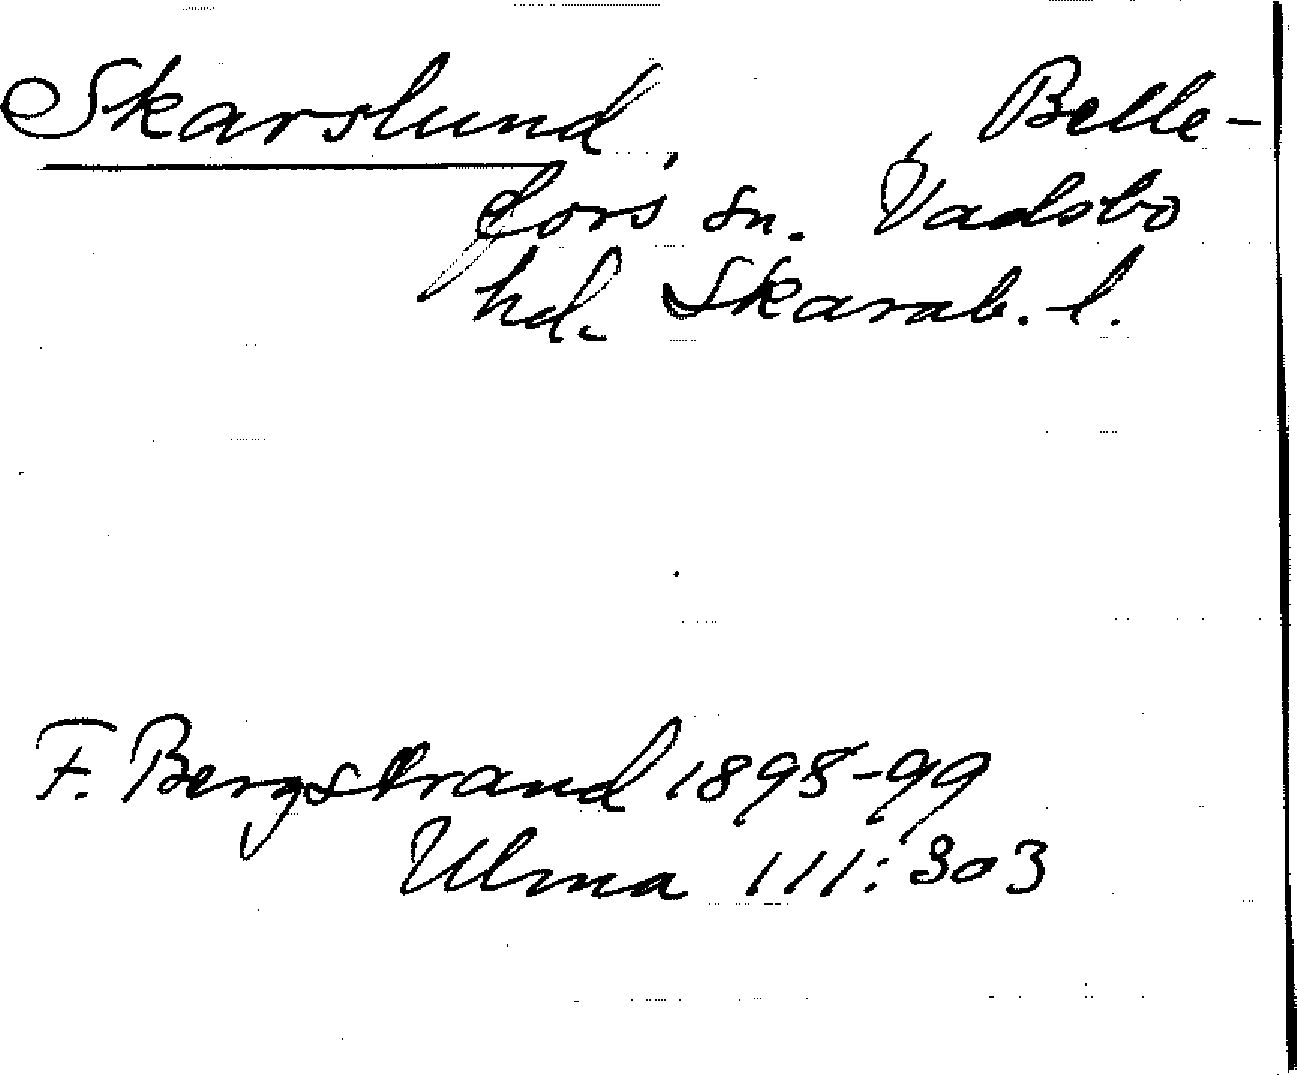 Skarslund, Belle-
fors sn. Vadsbo
hd. Skarab. l.
F. Bergstrand 1898-99
Ulma 111:303